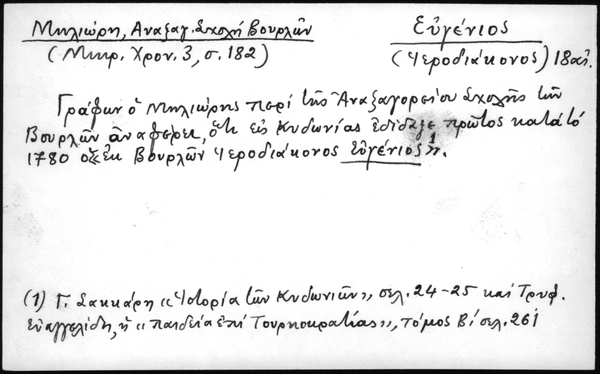 Μηλιώρη, Αναξαγ. Σχολή Βουρλών
(Μικρ. Χρον. 3, σ. 182)
Εὐγένιος
(Ἱεροδιάκονος) 18 αἰ.
Γράφων ὁ Μηλιώρης περί τῆς Ἀναξαγορείου Σχολῆς τῶν
Βουρλῶν ἀναφέρει, ὅτι εἰς Κυδωνίας ἐδίδαξε πρῶτος κατά τό
1780 ὁ ἐκ Βουρλῶν Ἱεροδιάκονος Εὐγένιος¹».
(1) Γ. Σακκάρη «Ἱστορία τῶν Κυδωνιῶν», σελ. 24-25 καί Τρυφ.
Εὐαγγελίδη, ἡ «παιδεία ἐπί Τουρκοκρατίας», τόμος Β΄ σελ. 261